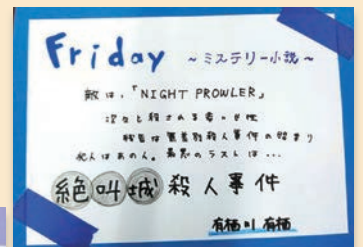 Friday ~ミステリー小説~
敵は、「NIGHT PROWLER」
次々と殺される若い女性
無差別殺人事件の始まり
犯人はあの人。最悪のラストは...
絶叫城殺人事件
有栖川 有栖